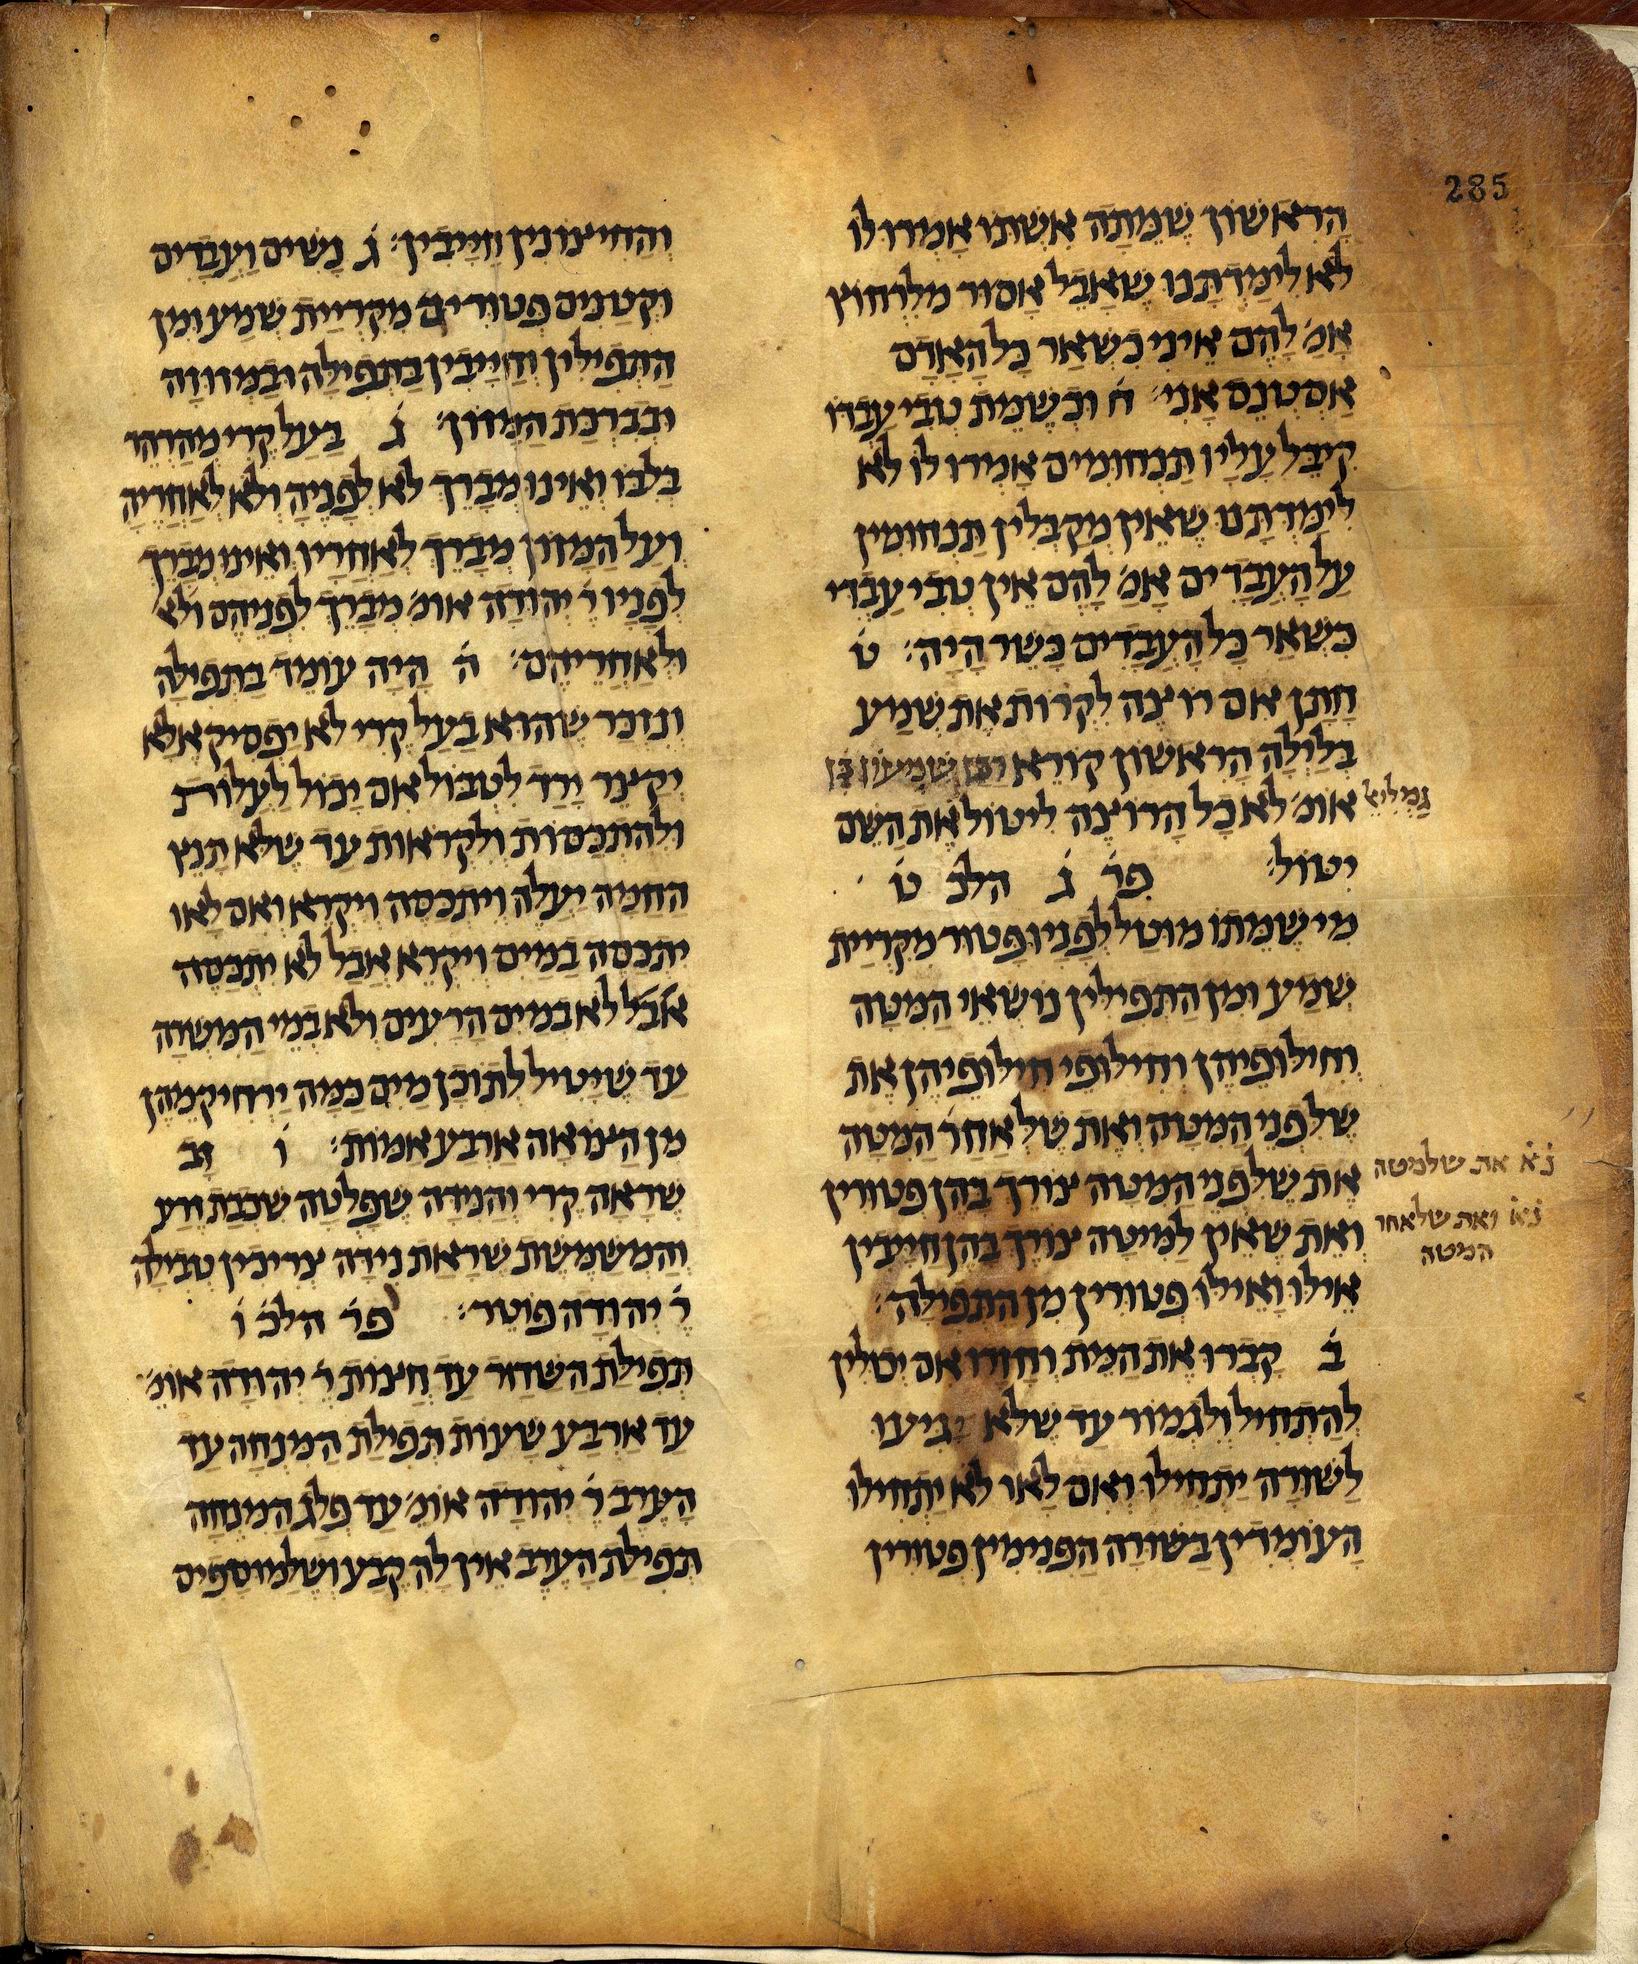 285
הראשון שמתה אשתו אמרו לו
לא לימדתנו שאבל אסור מלרחוץ
אמ׳ להם איני כשאר כל האדם
אסטנס אני׃ ח וכשמת טבי עבדו
קיבל עליו תנחומים אמרו לו לא
לימדתנו שאין מקבלין תנחומין
על העבדים אמ׳ להם אין טבי עבדי
כשאר כל העבדים כשר היה׃ ט
חתן אם רוצה לקרות את שמע
בלילה הראשון קורא רבן שמעון בן
גמליאל
אומ׳ לא כל הרוצה ליטול את השם
יטול׃ פר׳ ג הלכ׳ ט
מי שמתו מוטל לפניו פטור מקריית
שמע ומן התפילין נושאי המטה
וחילופיהן וחילופי חילופיהן את
שלפני המטה ואת שלאחר המטה
את שלפני המטה צורך בהן פטורין
נ׳א׳ את שלמטה
ואת שאין למיטה צורך בהן חייבין
נ׳א׳ ואת שלאחר
המטה
אילו ואילו פטורין מן התפילה׃
ב קברו את המית וחזרו אם יכולין
להתחיל ולגמור עד שלא יגיעו
לשורה יתחילו ואם לאו לא יתחילו
העומדין בשורה הפנימין פטורין
והחיצונין חייבין׃ ג נשים ועבדים
וקטנים פטורים מקריית שמע ומן
התפילין וחייבין בתפילה ובמזוזה
ובברכת המזון׃ ג בעל קרי מהרהר
בלבו ואינו מברך לא לפניה ולא לאחריה
ועל המזון מברך לאחריו ואינו מברך
לפניו ר׳ יהודה אומ׳ מברך לפניהם ולא
ולאחריהם׃ ה היה עומד בתפילה
ונזכר שהוא בעל קרי לא יפסיק אלא
יקצר ירד לטבול אם יכול לעלות
ולהתכסות ולקראות עד שלא תנץ
החמה יעלה ויתכסה ויקרא ואם לאו
יתכסה במים ויקרא אבל לא יתכסה
אבל לא במים הרעים ולא במי המשרה
עד שיטיל לתוכן מים כמה ירחיק מהן
מן הצואה ארבע אמות׃ ו זב
שראה קרי והנידה שפלטה שכבת זרע
והמשמשת שראת נידה צריכין טבילה
ר׳ יהודה פוטר׃ פר׳ הלכ׳ ו
תפילת השחר עד חצות ר׳ יהודה אומ׳
עד ארבע שעות תפילת המנחה עד
הערב ר׳ יהודה אומ׳ עד פלג המנחה
תפילת הערב אין לה קבע ושלמוספים